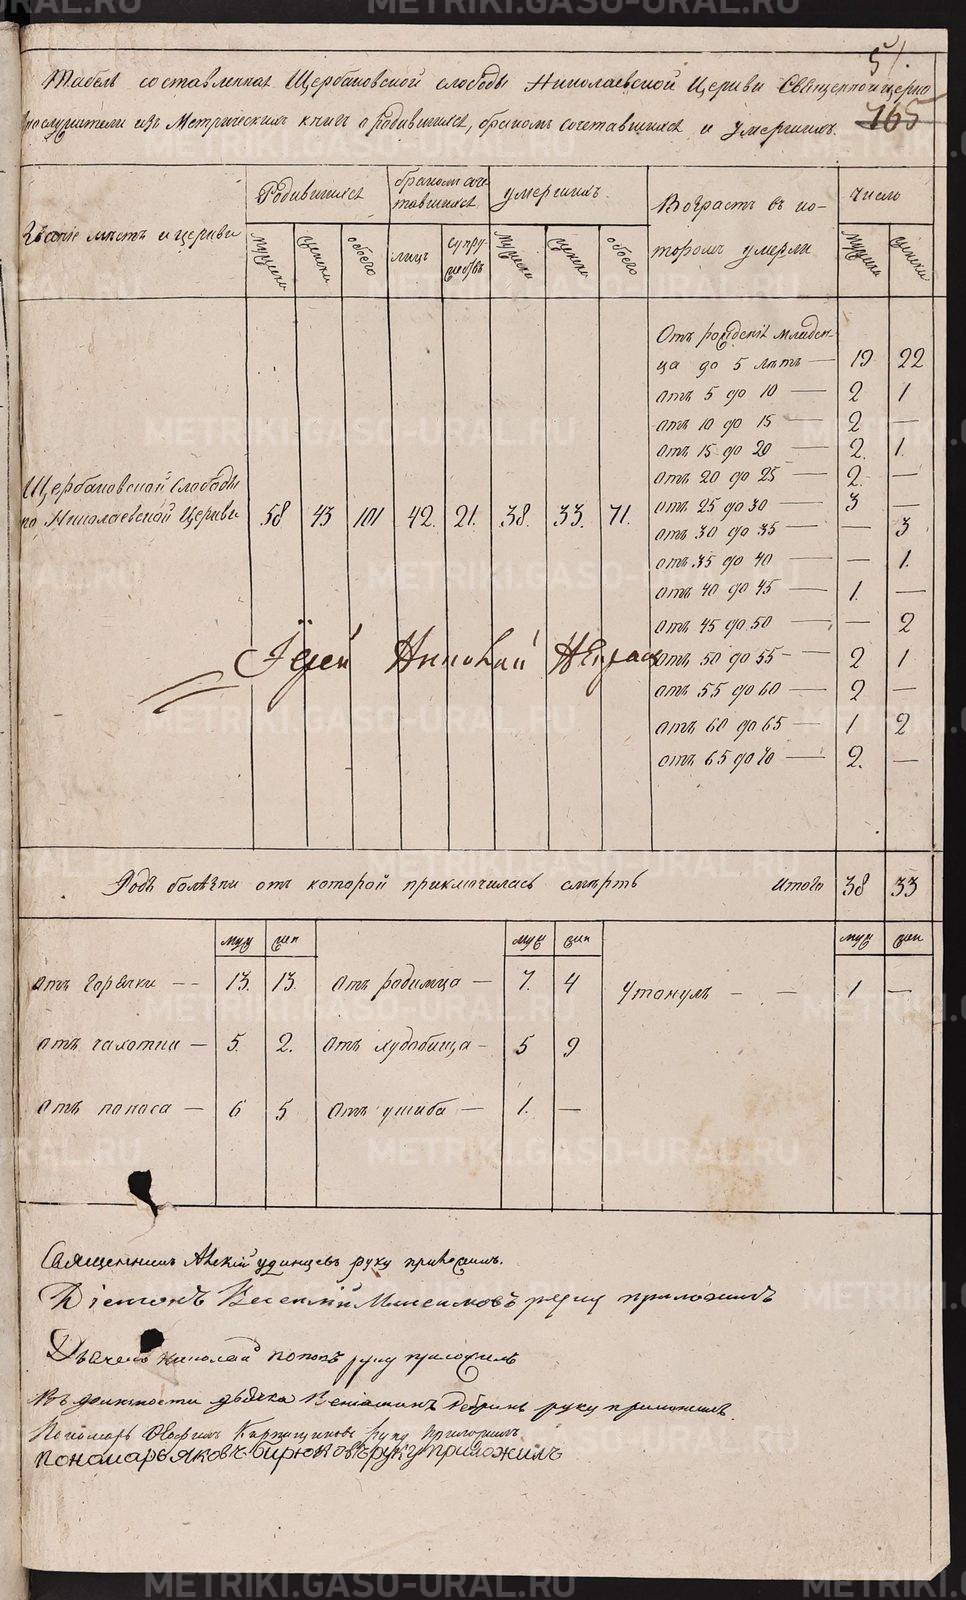 51.
165
Табель составленная Щербаковской слободы Николаевской Церкви Священноцерко
внослужители изъ Метрическихъ книгъ о родившихся, бракомъ сочетавшихся и умершихъ.
Званіе мѣстъ и церкви
Родившихся
бракомъ соче
тавшихся
умершихъ.
Возрастъ въ ко-
торомъ умерли
число
мужска
женска
обоего
лицъ
супру
жествъ
мужска
женска
обоего
мужска
женска
Щербаковской Слободы
по Николаевской Церкви
58 43 101 42. 21. 38. 33. 71.
Отъ рожденія младен-
ца до 5 лѣтъ — 19 22
отъ 5 до 10 — 2 1
отъ 10 до 15 — 2 —
отъ 15 до 20 — 2. 1.
отъ 20 до 25 — 2. —
отъ 25 до 30 — 3 —
отъ 30 до 35 — — 3
отъ 35 до 40 — — 1.
отъ 40 до 45 — 1. —
отъ 45 до 50 — — 2
отъ 50 до 55 — 2 1
отъ 55 до 60 — 2 —
отъ 60 до 65 — 1 2
отъ 65 до 70 — 2. —
Іерей Николай
Родъ болѣзни отъ которой приключилась смерть
Итого 38 33
муж жен муж жен муж жен
отъ горячки — 13. 13. Отъ родимца — 7. 4 Утонулъ — — 1 —
отъ чахотки — 5. 2. Отъ худобища — 5 9
отъ поноса — 6 5 Отъ ушиба — 1. —
Священникъ Удинцевъ руку приложилъ.
Діаконъ Василій Максимовъ руку приложилъ
Дьячекъ Николай Поповъ руку приложилъ
Въ должности дьячка Веніаминъ руку приложилъ.
Пономарь руку приложилъ
пономарь яковъ бирюковъ руку приложилъ
METRIKI.GASO-URAL.RU